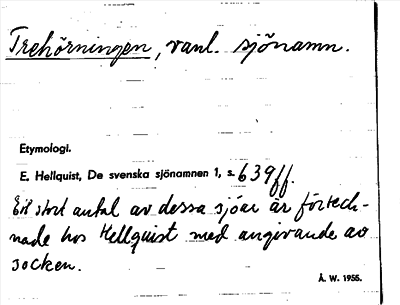 Trehörningen, vanl. sjönamn.
Etymologi.
E. Hellquist, De svenska sjönamnen 1, s. 639ff.
Ett stort antal av dessa sjöar är förteck-
nade hos Hellquist med angivande av
socken.
Å. W. 1955.